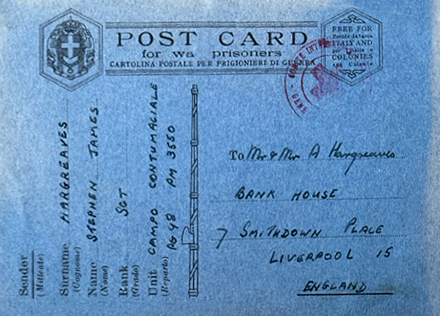 POST CARD
for wa prisoners
CARTOLINA POSTALE PER PRIGIONIERI DI GUERRA
FREE FOR
ITALY AND
COLONIES
To Mr & Mrs A Hargreaves
BANK HOUSE
7 SMITHDOWN PLACE
LIVERPOOL 15
ENGLAND
Sender
(Mittente)
Surname HARGREAVES
(Cognome)
Name STEPHEN JAMES
(Nome)
Rank SGT
(Grado)
Unit CAMPO CONTUMALIALE
(Reparto) PG 48 PM 3550